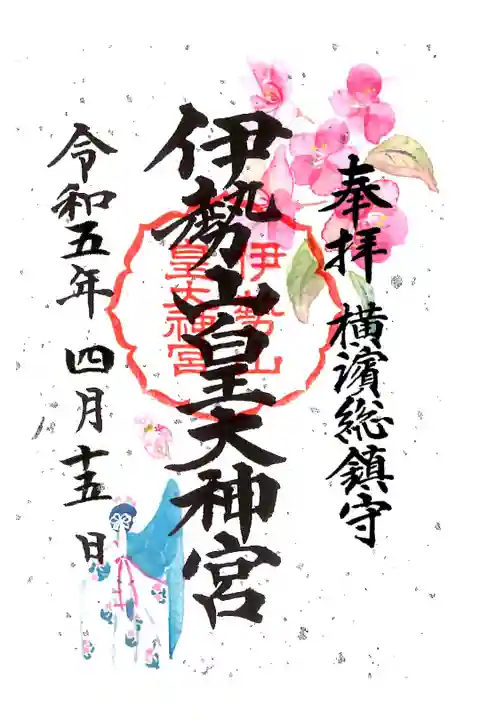 奉拝 横濱総鎮守
伊勢山皇大神宮
伊勢山
皇大神宮
令和五年 四月十五日